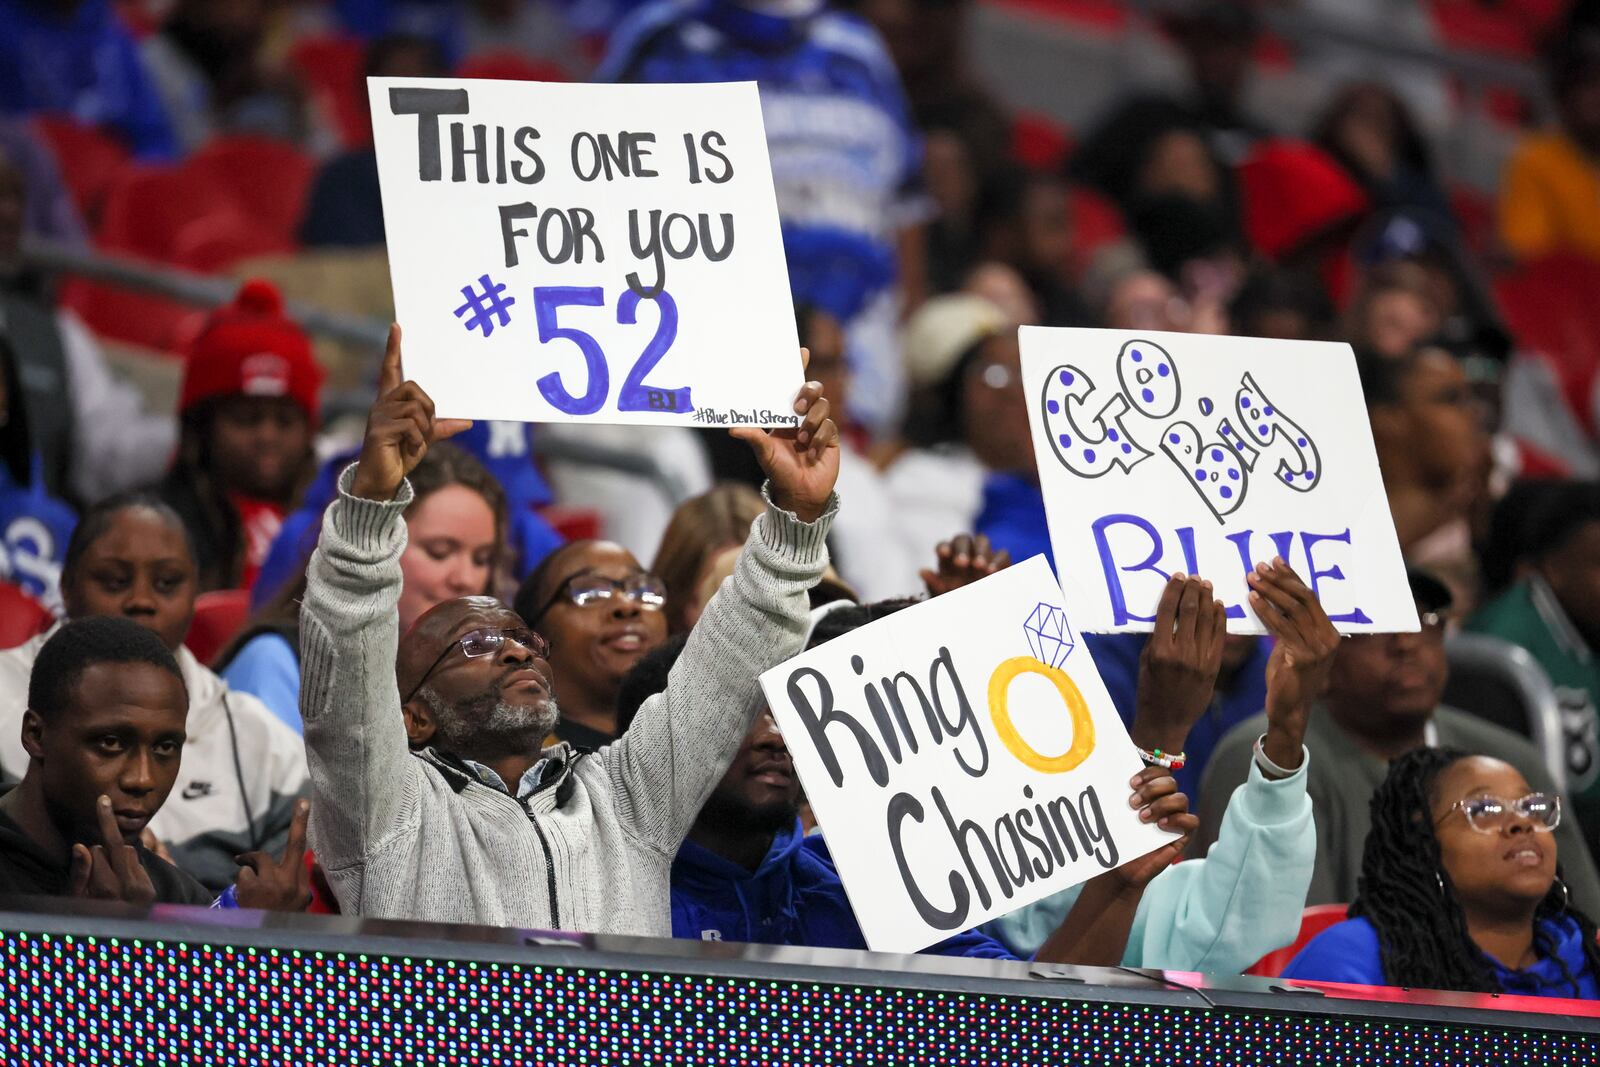 THIS ONE IS
FOR YOU
#52
BJ
#Blue Devil Strong
GO
Big
BLUE
Ring
Chasing
R